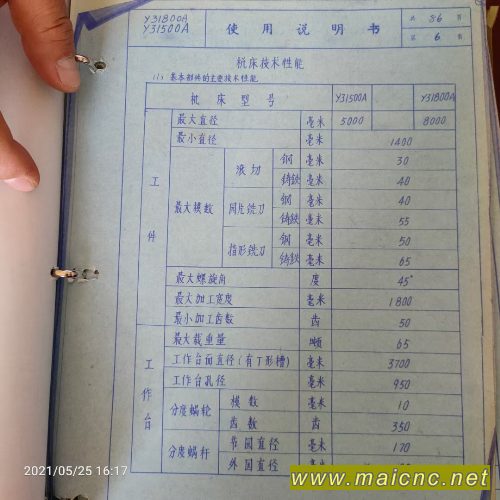 Y31800A
Y31500A
使用说明书
共 56 页
第 6 页
机床技术性能
(1) 基本部件的主要技术性能
机床型号 Y31500A Y31800A
工件
最大直径 毫米 5000 8000
最小直径 毫米 1400
最大模数
滚切 钢 毫米 30
铸铁 毫米 40
园片铣刀 钢 毫米 40
铸铁 毫米 55
指形铣刀 钢 毫米 50
铸铁 毫米 65
最大螺旋角 度 45°
最大加工宽度 毫米 1800
最小加工齿数 齿 50
工作台
最大载重量 吨 65
工作台面直径(有丁形槽) 毫米 3700
工作台孔径 毫米 950
分度蜗轮 模数 毫米 10
齿数 齿 350
分度蜗杆 节园直径 毫米 170
外园直径 毫米
2021/05/25 16:17
www.maicnc.net